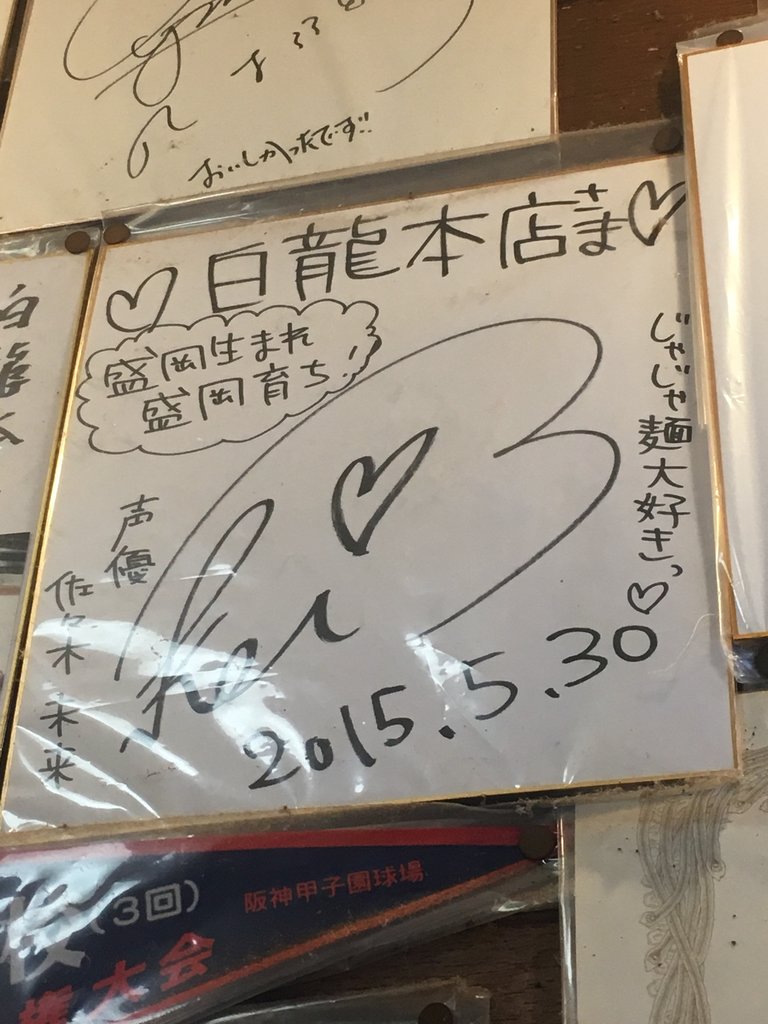 おいしかったです!!
白龍本店さま
盛岡生まれ
盛岡育ち!
じゃじゃ麺大好きっ
声優
佐々木未来
2015.5.30
校(3回)
阪神甲子園球場
権大会